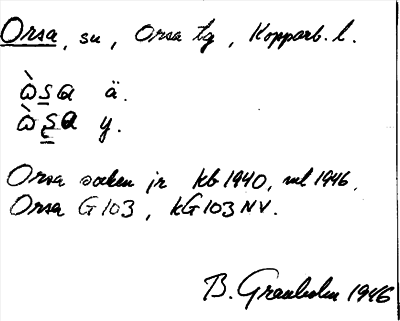 Orsa, sn, Orsa tg, Kopparb. l.
ä.
y.
Orsa socken jr kb 1940, ml 1946,
Orsa G 103, kG 103 NV.
B. Granholm 1946